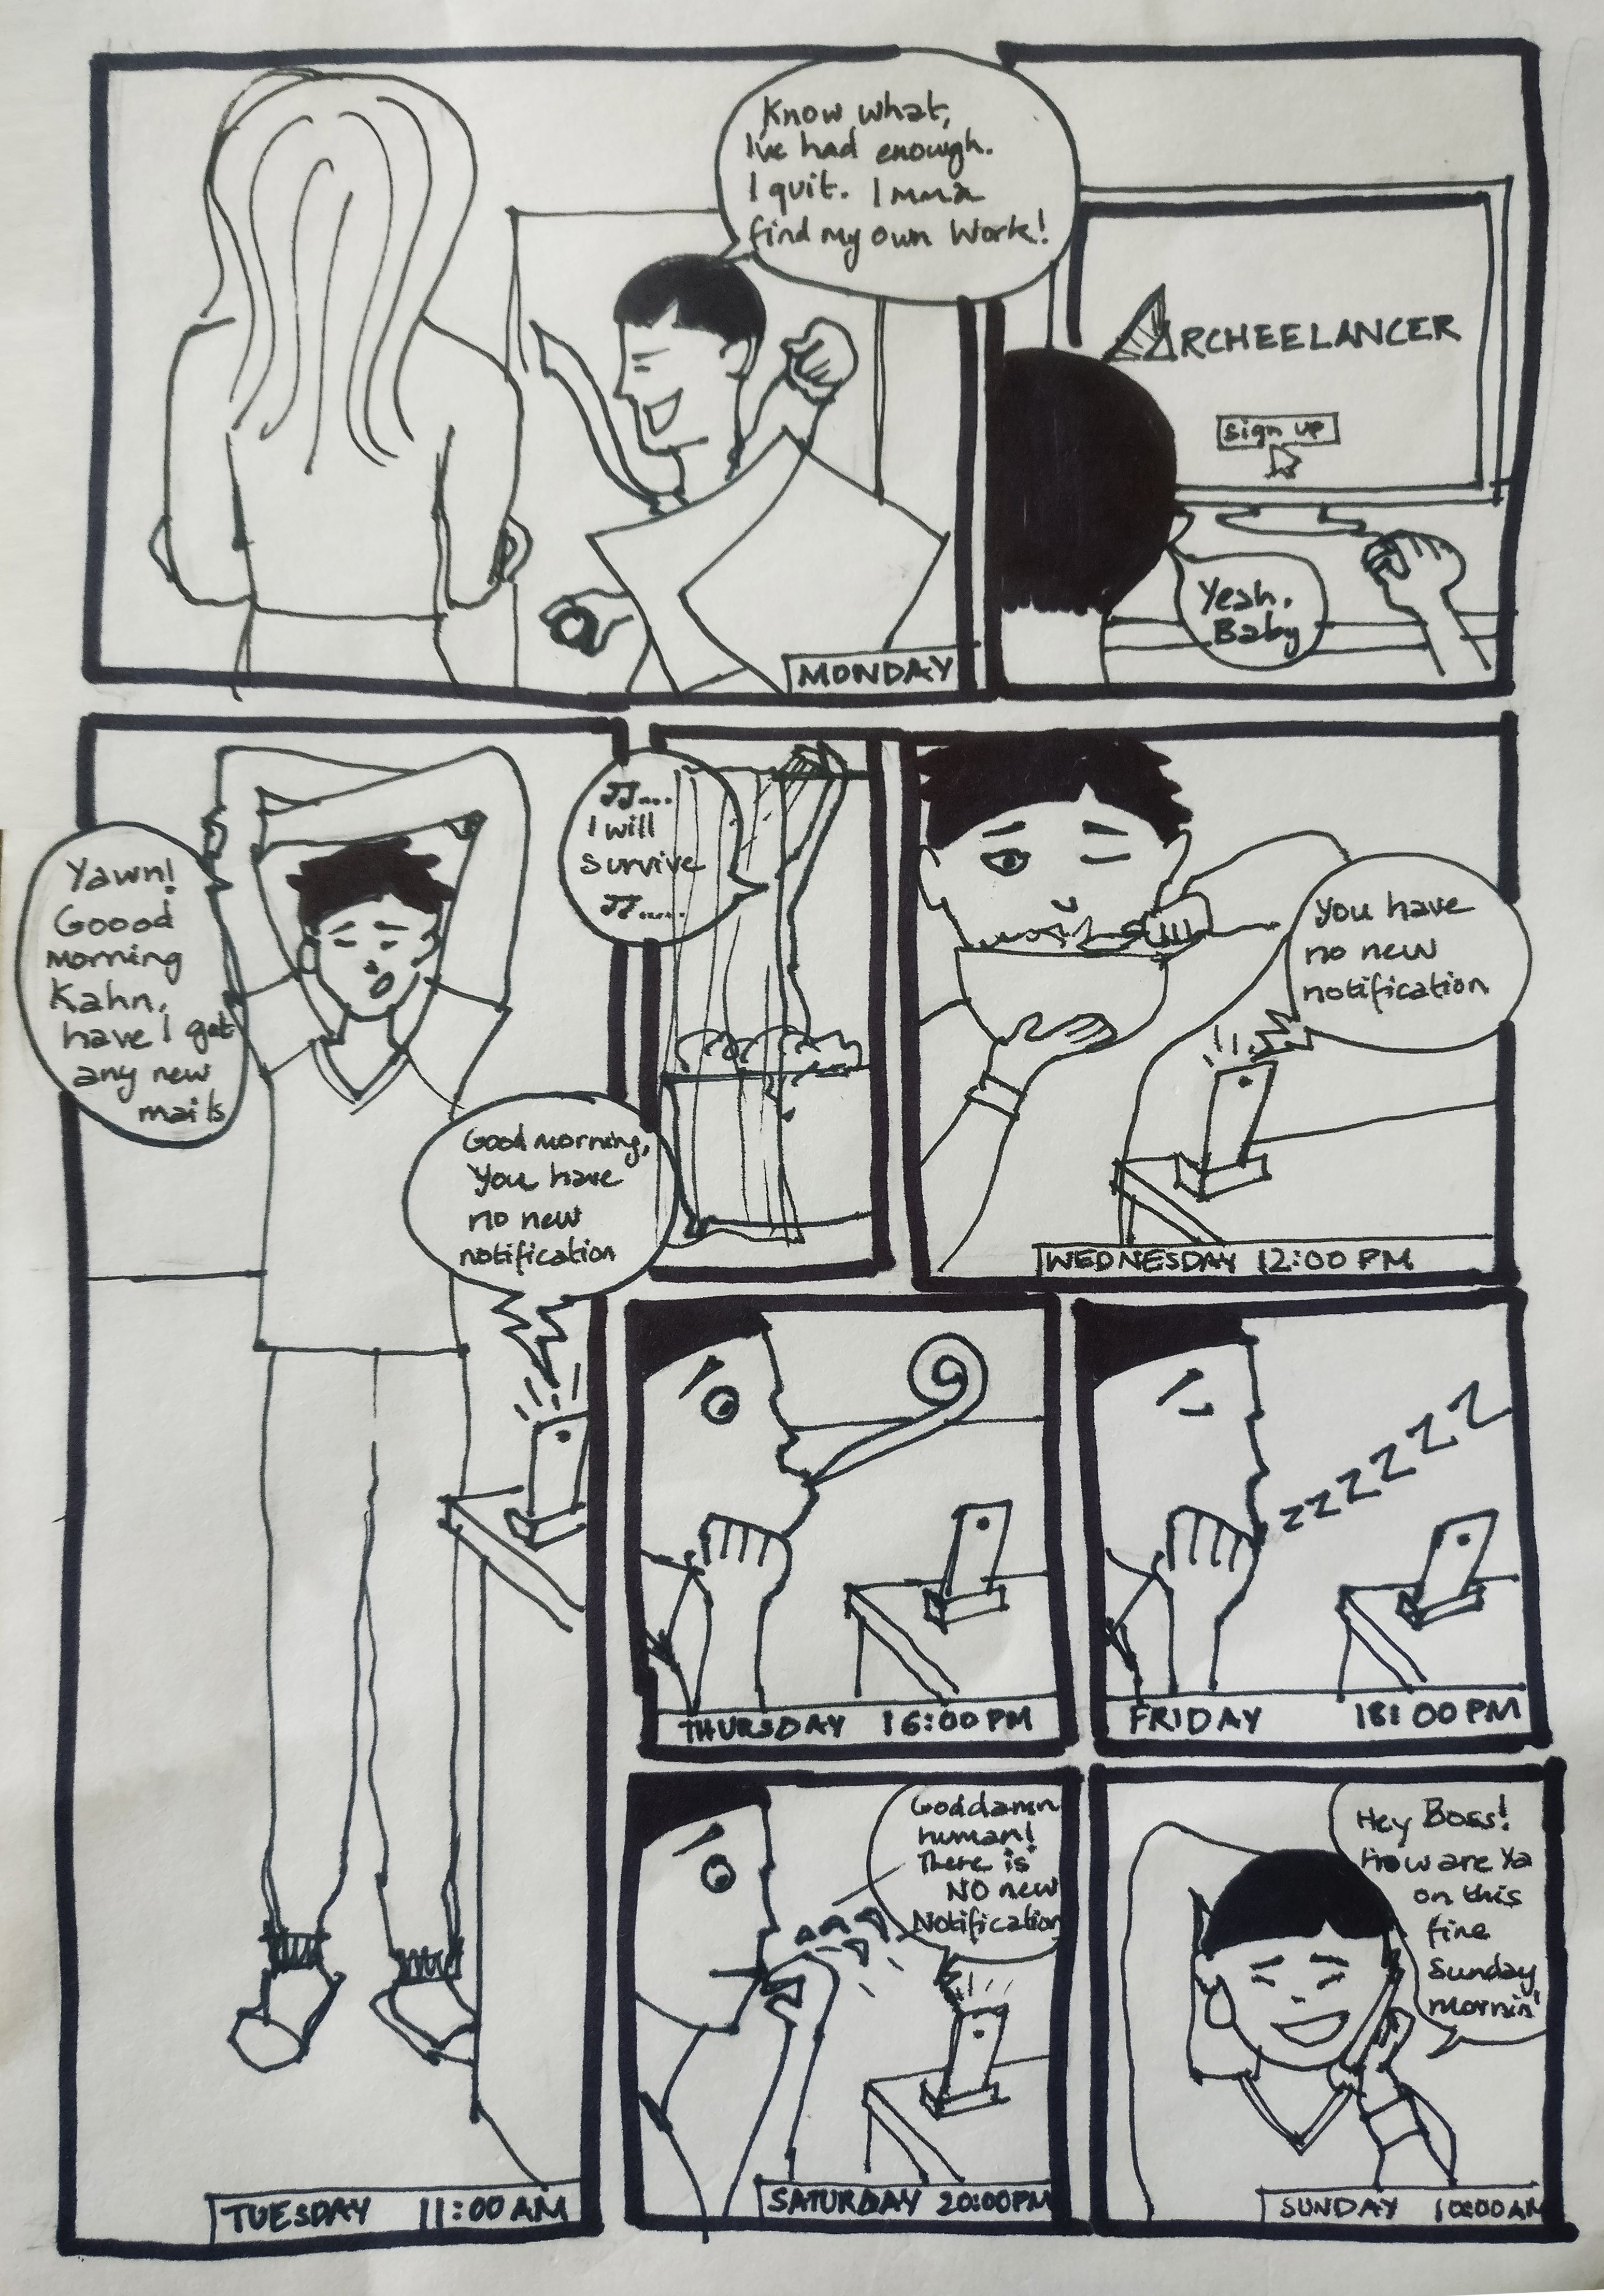 Know what,
I've had enough.
I quit. Imma
find my own Work!
MONDAY
ARCHEELANCER
sign up
Yeah,
Baby
Yawn!
Goood
morning
Kahn,
have I got
any new
mails
Good morning,
You have
no new
notification
TUESDAY 11:00 AM
♫....
I will
survive
♫.....
You have
no new
notification
WEDNESDAY 12:00 PM
THURSDAY 16:00 PM
zzZZZZZ
FRIDAY 18:00 PM
Goddamn
human!
There is
NO new
Notification
SATURDAY 20:00PM
Hey Boss!
How are Ya
on this
fine
Sunday
mornin'
SUNDAY 10:00AM